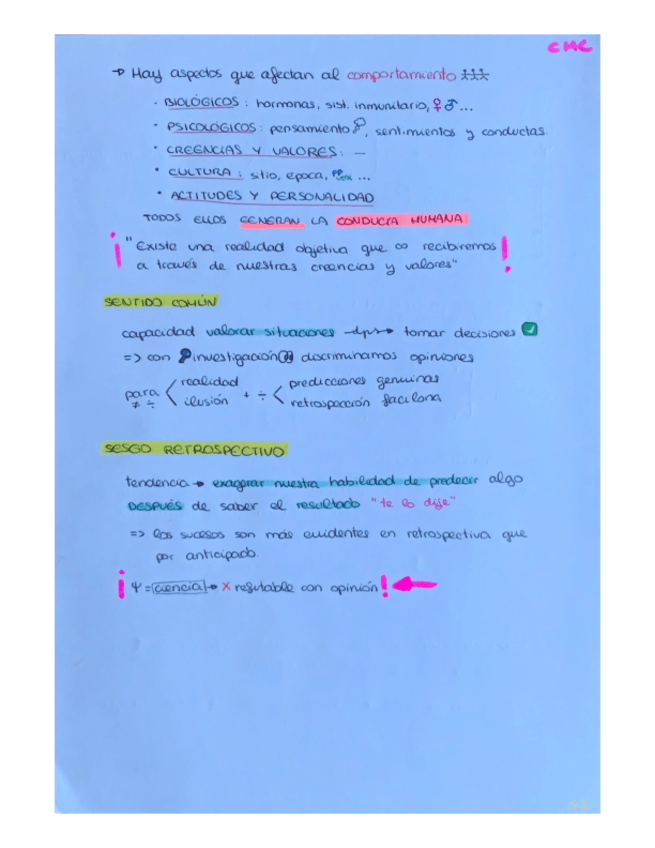 CMC
→ Hay aspectos que afectan al comportamiento
· BIOLÓGICOS: hormonas, sist. inmunitario, ♀ ♂...
· PSICOLÓGICOS: pensamiento, sentimientos y conductas.
· CREENCIAS Y VALORES: —
· CULTURA: sitio, epoca, ...
· ACTITUDES Y PERSONALIDAD
TODOS ELLOS GENERAN LA CONDUCTA HUMANA
¡"Existe una realidad objetiva que ∞ recibiremos!
a través de nuestras creencias y valores"
SENTIDO COMÚN
capacidad valorar situaciones → tomar decisiones ✓
=> con investigación discriminamos opiniones
para ≠ ÷ < realidad + ÷ < predicciones genuinas
ilusión retrospección facilona
SESGO RETROSPECTIVO
tendencia → exagerar nuestra habilidad de predecir algo
DESPUÉS de saber el resultado "te lo dije"
=> los sucesos son más evidentes en retrospectiva que
por anticipado.
¡ Ψ = ciencia → x refutable con opinión! ←